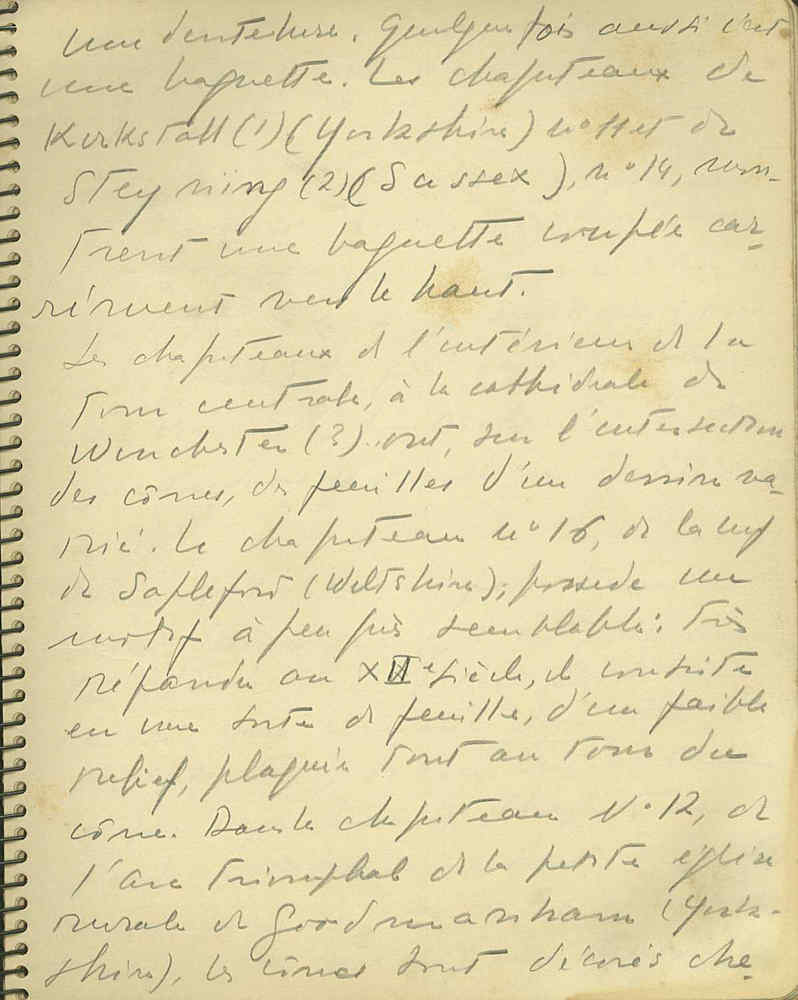 une dentelure. Quelquefois aussi c'est
une baguette. Les chapiteaux de
Kirkstall (1) (Yorkshire) n° 11 et de
Steyning (2) (Sussex), n° 14, mon-
trent une baguette coupée car-
rément vers le haut.
Les chapiteaux de l'intérieur de la
tour centrale, à la cathédrale de
Winchester (?) ont, sur l'intersection
des cônes, des feuilles d'un dessin va-
rié. Le chapiteau n° 16, de la nef
de Stapleford (Wiltshire), possède un
motif à peu près semblable: très
répandu au XIIe siècle, il consiste
en une sorte de feuille, d'un faible
relief, plaquée tout au tour du
cône. Dans le chapiteau N° 12, de
l'arc triomphal de la petite église
rurale de Goodmanham (York-
shire), les cônes sont décorés che-